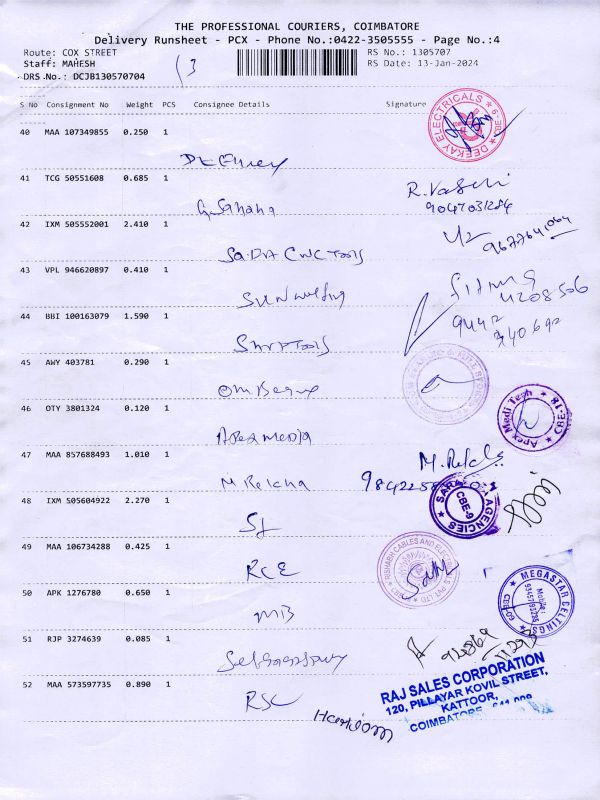 THE PROFESSIONAL COURIERS, COIMBATORE
Delivery Runsheet - PCX - Phone No.:0422-3505555 - Page No.:4
Route: COX STREET
RS No.: 1305707
Staff: MAHESH
RS Date: 13-Jan-2024
DRS No.: DCJB130570704
S No Consignment No Weight PCS Consignee Details Signature
DEEKAY ELECTRICALS CBE-9
40 MAA 107349855 0.250 1
41 TCG 50551608 0.685 1
G. Sahana
R. Vasuki
9047031284
42 IXM 505552001 2.410 1
SaDA CNC Tools
43 VPL 946620897 0.410 1
Sun welding
44 BBI 100163079 1.590 1
Sharp Tools
45 AWY 403781 0.290 1
46 OTY 3801324 0.120 1
Apex media
Apex Medi Tech CBE-18
47 MAA 857688493 1.010 1
M Rekha
M. Rekha
48 IXM 505604922 2.270 1
AGENCIES CBE-9
49 MAA 106734288 0.425 1
RCE
RISHABH CABLES AND ELECTRICALS PVT LTD
50 APK 1276780 0.650 1
MB
MEGASTAR CELTINGS
Mobile:
51 RJP 3274639 0.085 1
52 MAA 573597735 0.890 1
RSC
Hariom
RAJ SALES CORPORATION
120, PILLAYAR KOVIL STREET,
KATTOOR,
COIMBATORE